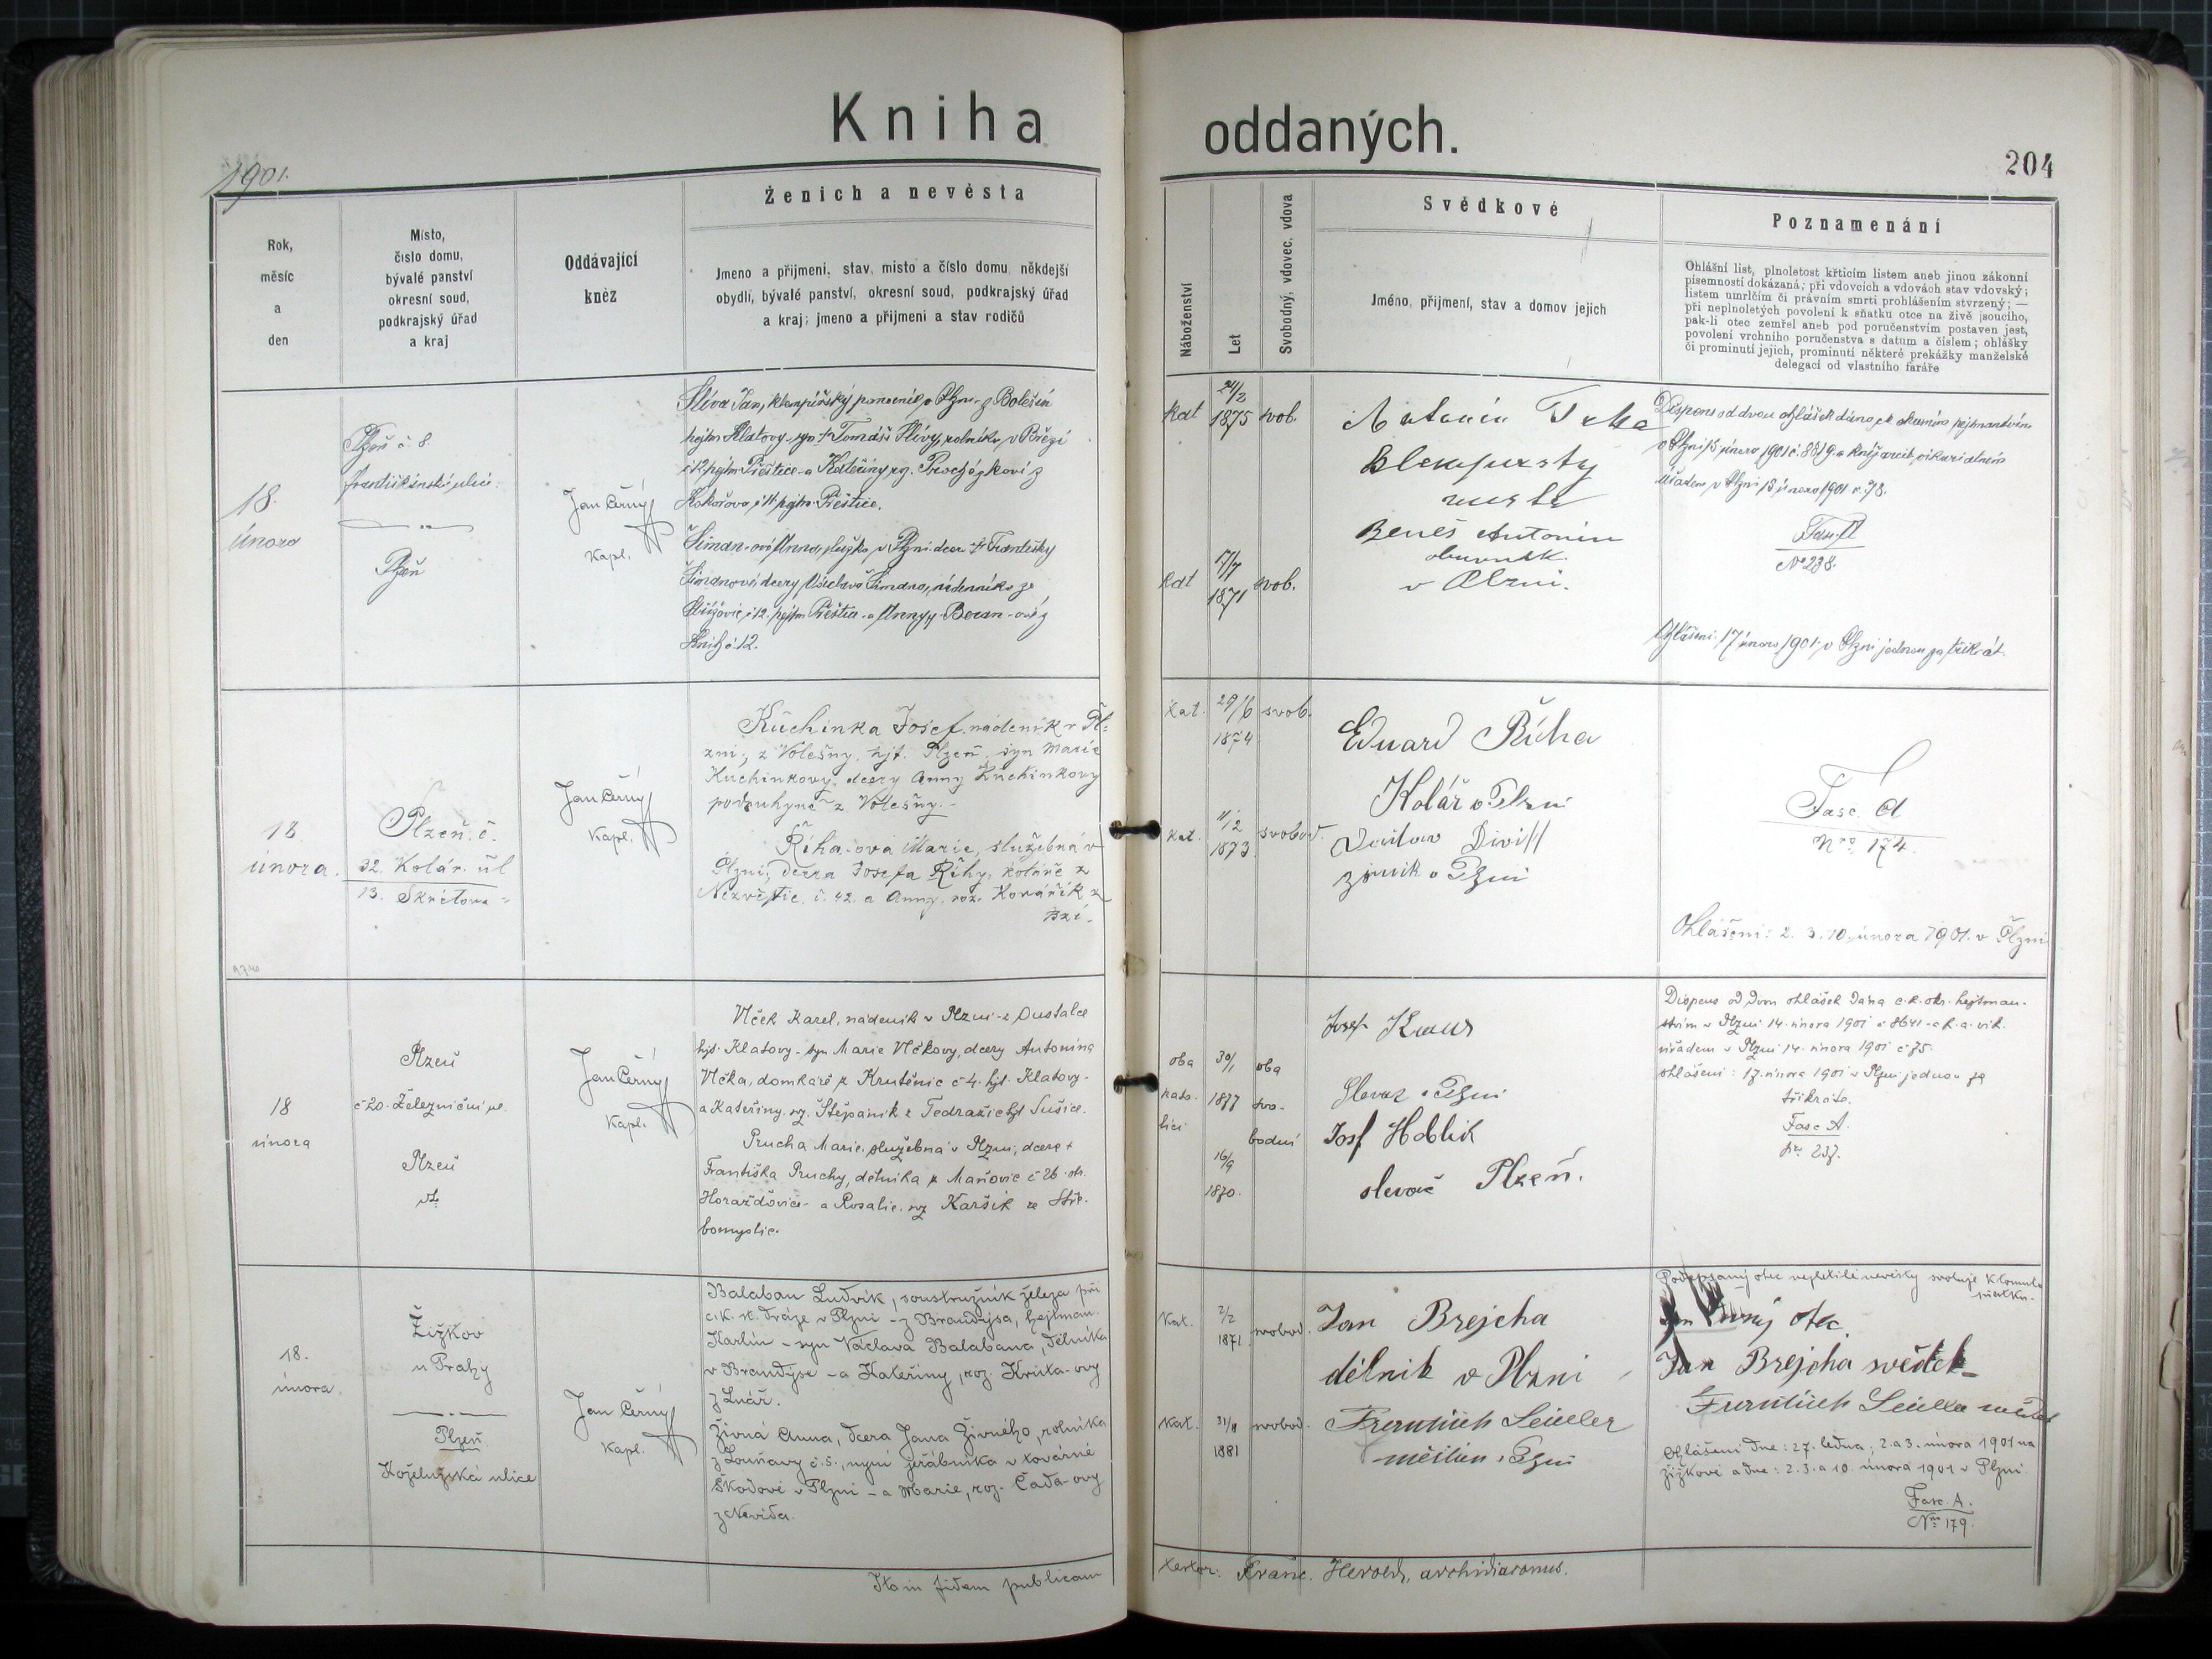 Kniha oddaných.
1901.
204
Rok,
měsíc
a
den
Místo,
číslo domu,
bývalé panství
okresní soud,
podkrajský úřad
a kraj
Oddávající
kněz
Ženich a nevěsta
Jmeno a přijmeni, stav, misto a číslo domu někdejší
obydlí, bývalé panství, okresní soud, podkrajský úřad
a kraj; jmeno a přijmeni a stav rodičů
Náboženství
Let
Svobodný, vdovec, vdova
Svědkové
Jméno, přijmení, stav a domov jejich
Poznamenání
Ohlášní list, plnoletost křticím listem aneb jinou zákonní
písemností dokázaná; při vdovcích a vdovách stav vdovský;
listem umrlčím či právním smrti prohlášením stvrzený; —
při neplnoletých povolení k sňatku otce na živě jsoucího,
pak-li otec zemřel aneb pod poručenstvím postaven jest,
povolení vrchního poručenstva s datum a číslem; ohlášky
či prominutí jejich, prominutí některé prekážky manželské
delegací od vlastního faráře
18.
února
Plzeň č. 8.
františkánská ulice.
Plzeň
Jan Černý
Kapl.
Slíva Jan, klempířský pomocník v Plzni - z Bolešin
hejtm. Klatovy - syn † Tomáše Slívy, rolníka v Březí
č 12 pejtm Přeštice - a Kateřiny roz. Procházkovi z
Kokořova č 11 pejtm Přeštice.
Šiman-ová Anna, služka v Plzni dcera † Františky
Šimanové, dcery Václava Šimana, nádenníka ze
č 12. pejtm Přeštice - a Anny r. Beran-ové z
Knih č. 12.
kat 24/2 1875 svob.
kat 17/7 1871 svob.
Antonín
Klempirsky
Beneš Antonín
obuvník
v Plzni.
Dispens od dvou ohlášek dána c. k. okresním hejtmanstvím
v Plzni 15 února 1901 č. 8819. a knížecím arcib. vikariatním
úřadem v Plzni 15 února 1901 č. 78.
Fasc. A
No 238.
Ohlášeni: 17 února 1901 v Plzni jednou za třikrát.
18.
února.
Plzeň. č.
32. Kolár. ul
13. Skrétova -
Jan Černý
Kapl.
Kuchinka Josef. nádeník v Pl-
zni; z Volešny, hjt. Plzeň, syn Marie
Kuchinkovy, dcery Anny Kuchinkovy
podruhyně z Volešny. -
Říha-ová Marie, služebná v
Plzni; dcera Josefa Říhy, koláře z
Nezvěstic, č. 42. a Anny. roz. Kovářík z
Bzí.
kat. 29/6 1874 svob.
kat. 11/2 1873 svobod.
Eduard Říha
Kolář v Plzni
Divill
v Plzni
Fasc. A
Nro 174.
Ohlášeni: 2. 3. 10. února 1901. v Plzni
18
února
Plzeň
č 20. Železniční ul.
Plzeň
Jan Černý
Kapl.
Vlček Karel, nádeník v Plzni - z Oustalče
hjt. Klatovy - syn Marie Vlčkovy, dcery Antonína
Vlčka, domkáře z Krutěnic č 4. hjt. Klatovy -
a Kateřiny. roz. Štěpaník z Tedražic hjt Sušice.
Prucha Marie, služebná v Plzni, dcera †
Františka Pruchy, dělníka z Maňovic č 26. ok.
Horažďovice - a Rosalie. roz Karšík ze Stře-
bomyslic.
oba kato- líci
30/1 1877
16/9 1870.
oba svo- bodní
Josef Kraus
Slevač v Plzni
Josf Hoblik
slevač Plzeň.
Dispens od dvou ohlášek dána c. k. okr. hejtman-
stvím v Plzni 14. února 1901 č 8641 - a k. a. vik.
úřadem v Plzni 14. února 1901 č 75.
ohlášeni: 17. února 1901 v Plzni jednou za
třikráte.
Fasc A.
Nr. 237.
18.
února.
Žižkov
u Prahy
Plzeň
Koželužská ulice
Jan Černý
Kapl.
Balaban Ludvík, soustružník železa při
c. k. st. dráze v Plzni - z Brandýsa, hejtman.
Karlín - syn Václava Balabana, dělníka
v Brandýse - a Kateřiny, roz. Kruta-ovy
z Lnář.
Živná Anna, dcera Jana Živného, rolníka
z Louňavy č. 5., nyní jeřábníka v továrně
Škodově v Plzni - a Marie, roz. Čada-ovy
z Nevida.
Kat. 2/2 1871 svobod.
Kat. 31/8 1881 svobod.
Jan Brejcha
dělník v Plzni
Frantisek Seidler
v Plzni
Podepsaný otec nezletilé nevěsty svoluje k tomuto
sňatku.
Jan Živný otec.
Jan Brejcha svědek
Frantisek Seidler svědek
Ohlášeni dne: 27. ledna; 2. a 3. února 1901 na
Žižkově a dne: 2. 3. a 10. února 1901 v Plzni.
Fasc. A.
Nro 179.
Ita in fidem publicam
testor: Franc. Herold, archidiaconus.